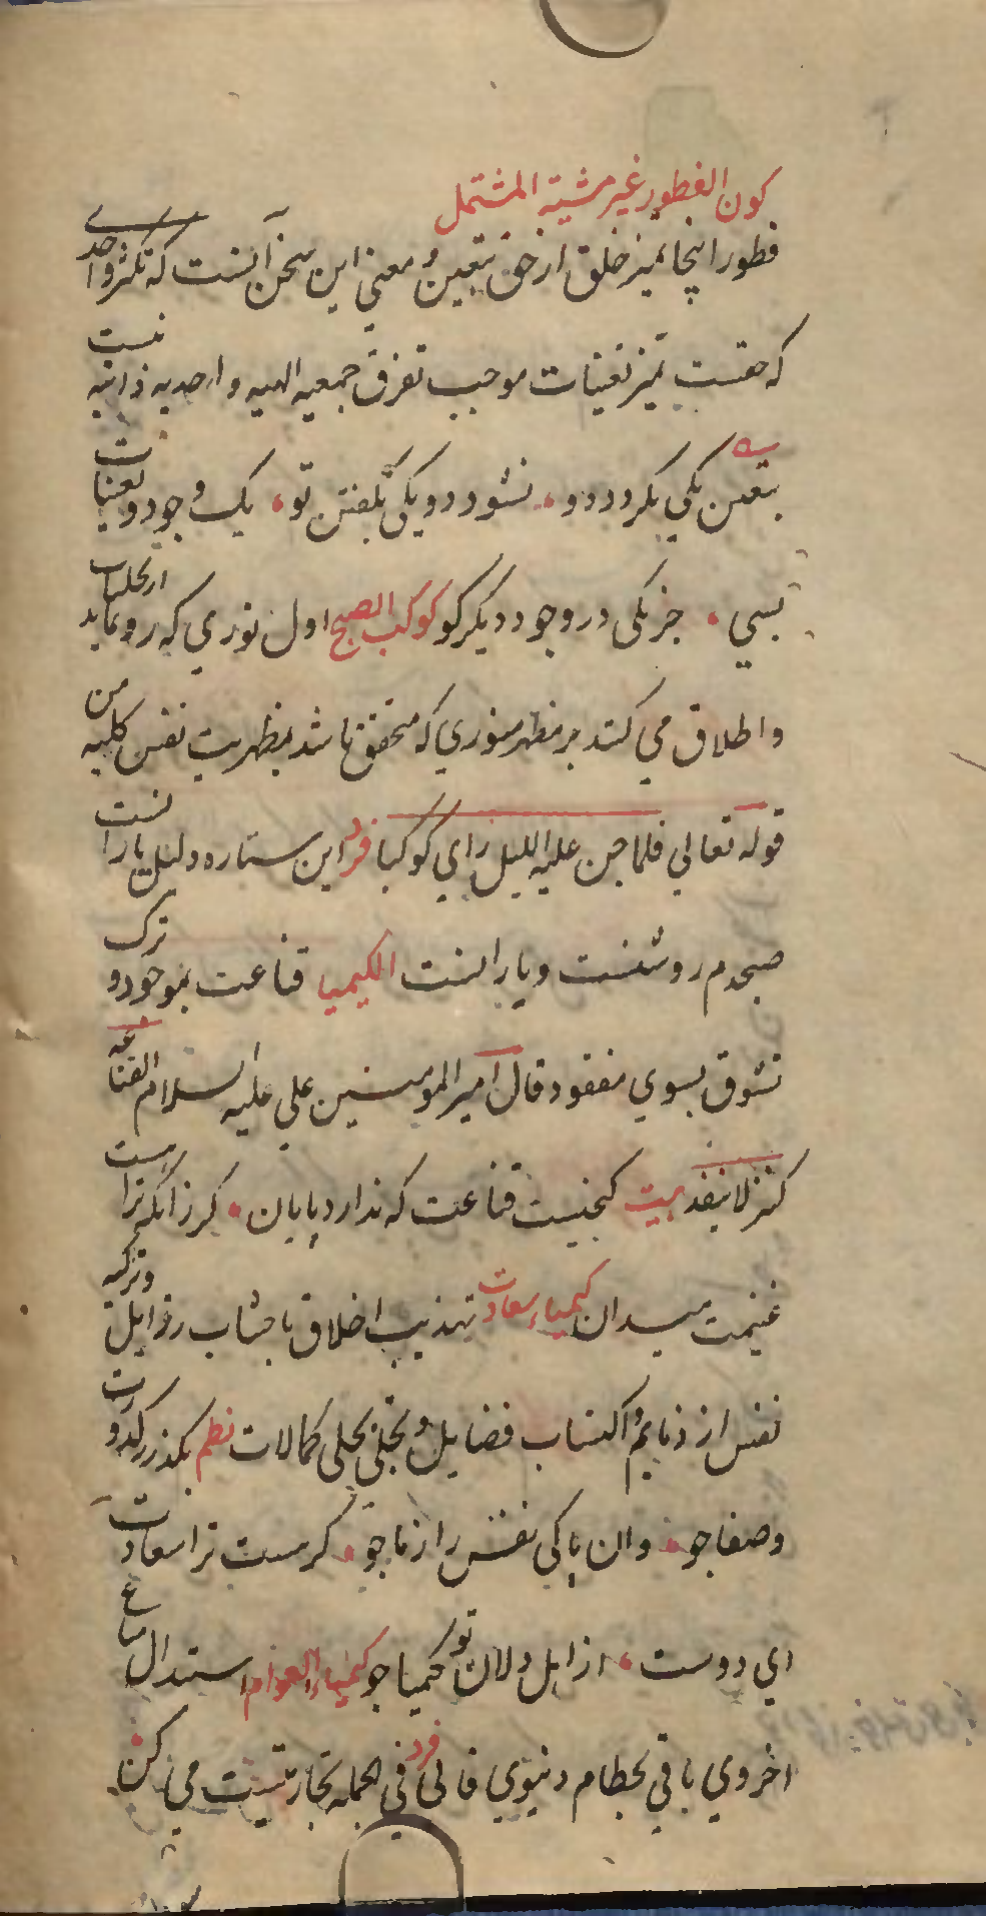 كون الفطور غير مشتة المشتمل
فطور اینجا تمیز خلق از حق بتعین و معنی این سخن آنست که تکثر واحدی
که هست تمیز تعینات موجب تفرق جمعیه الهیه و احدیه ذاتیه نیست
بتعین یکی بکرود دو نشود دو یکی بگفتن تو یک وجود و تعینات
بسی جز یکی در وجود دیگر کو کوکب الصبح اول نوری که رو نماید از تجلیات
و اطلاق می کنند بر مظهر منوری که متحقق باشد بمظهریت نفس کلیه من
قوله تعالی فلما جن علیه اللیل رای کوکبا فرد این ستاره دلیل یاراست
صبحدم روشنست و یاراست الکیمیا قناعت بموجود و ترک
تشوق بسوی مفقود قال امیر المومنین علی علیه السلام القناعه
کنز لا ینفد بیت کنجیست قناعت که ندارد پایان کر زانکه تراست
غنیمت میدان کیمیاء سعادت تهذیب اخلاق باجتناب رذایل و تزکیه
نفس از ذمایم و اکتساب فضایل و تجلی بحلی کمالات نظم بکذر ز کدورت
و صفا جو وان پاکی نفس را ز ما جو کر هست ترا سعادت
ای دوست از اهل دلان تو کیمیا جو کیمیاء العوام استبدال متاع
اخروی باقی بحطام دنیوی فانی فرد فی الجمله تجارتیست می کن